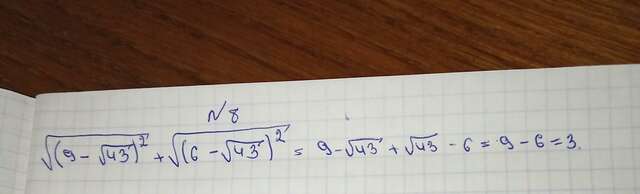 № 8
√(9 - √43)² + √(6 - √43)² = 9 - √43 + √43 - 6 = 9 - 6 = 3.